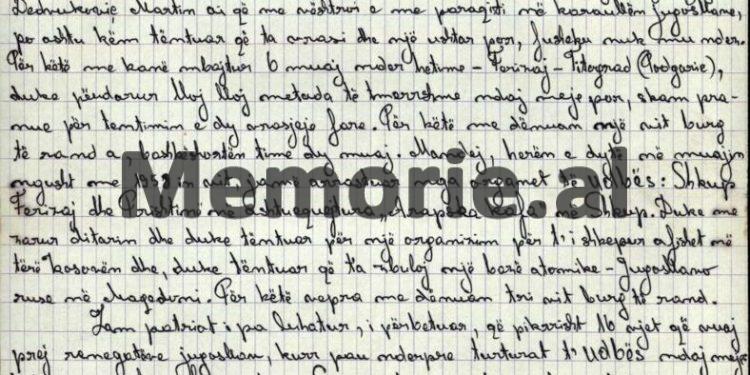 Dedvukoviç Martin ai që me vështroi e me paraqiti në karaullën jugosllave,
po ashtu këm tëntuar që ta vrasi dhe një ushtar por, fusheku nuk muu nder.
Për këtë me kanë mbajtur 6 muaj nder hetime - Ferizaj - Titograd (Podgoric),
duke përdorur lloj lloj metoda të tmerrshme ndaj meje por, skam pra-
nue për tentimin e dy vrasjeje fare. Për këtë me dënuan një vit burg
të rand a, bashkëshorten time dy muaj. Mandej, herën e dytë në muajin
mgusht me 1958 in vit, jamë arrastuar nga organet të UDBës: Shkup
Ferizaj dhe Prishtinë në ashtuequejtura "Arapska kafa në Shkup. Duke me
xarur ditarim dhe duke tëntuar për një organizim për t'i shkepur afishet në
tërë Kosovën dhe, duke tëntuar që ta zbuloj një bazë atomike - Jugosllavo
ruse në Maqedoni. Për këtë vepra me dënuan tri vit burg të rand.
Jam patriot i pa luhatur, i përbetuar, që pikrisht 16 vjet që vuaj
prej renegatëve jugosllav, kurr pau nderpre torturat t' UDBës ndaj meje
Memorie.al